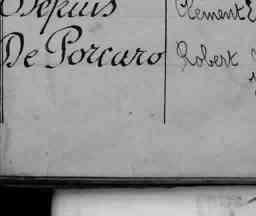 Depuis Clement E
De Porcaro Robert